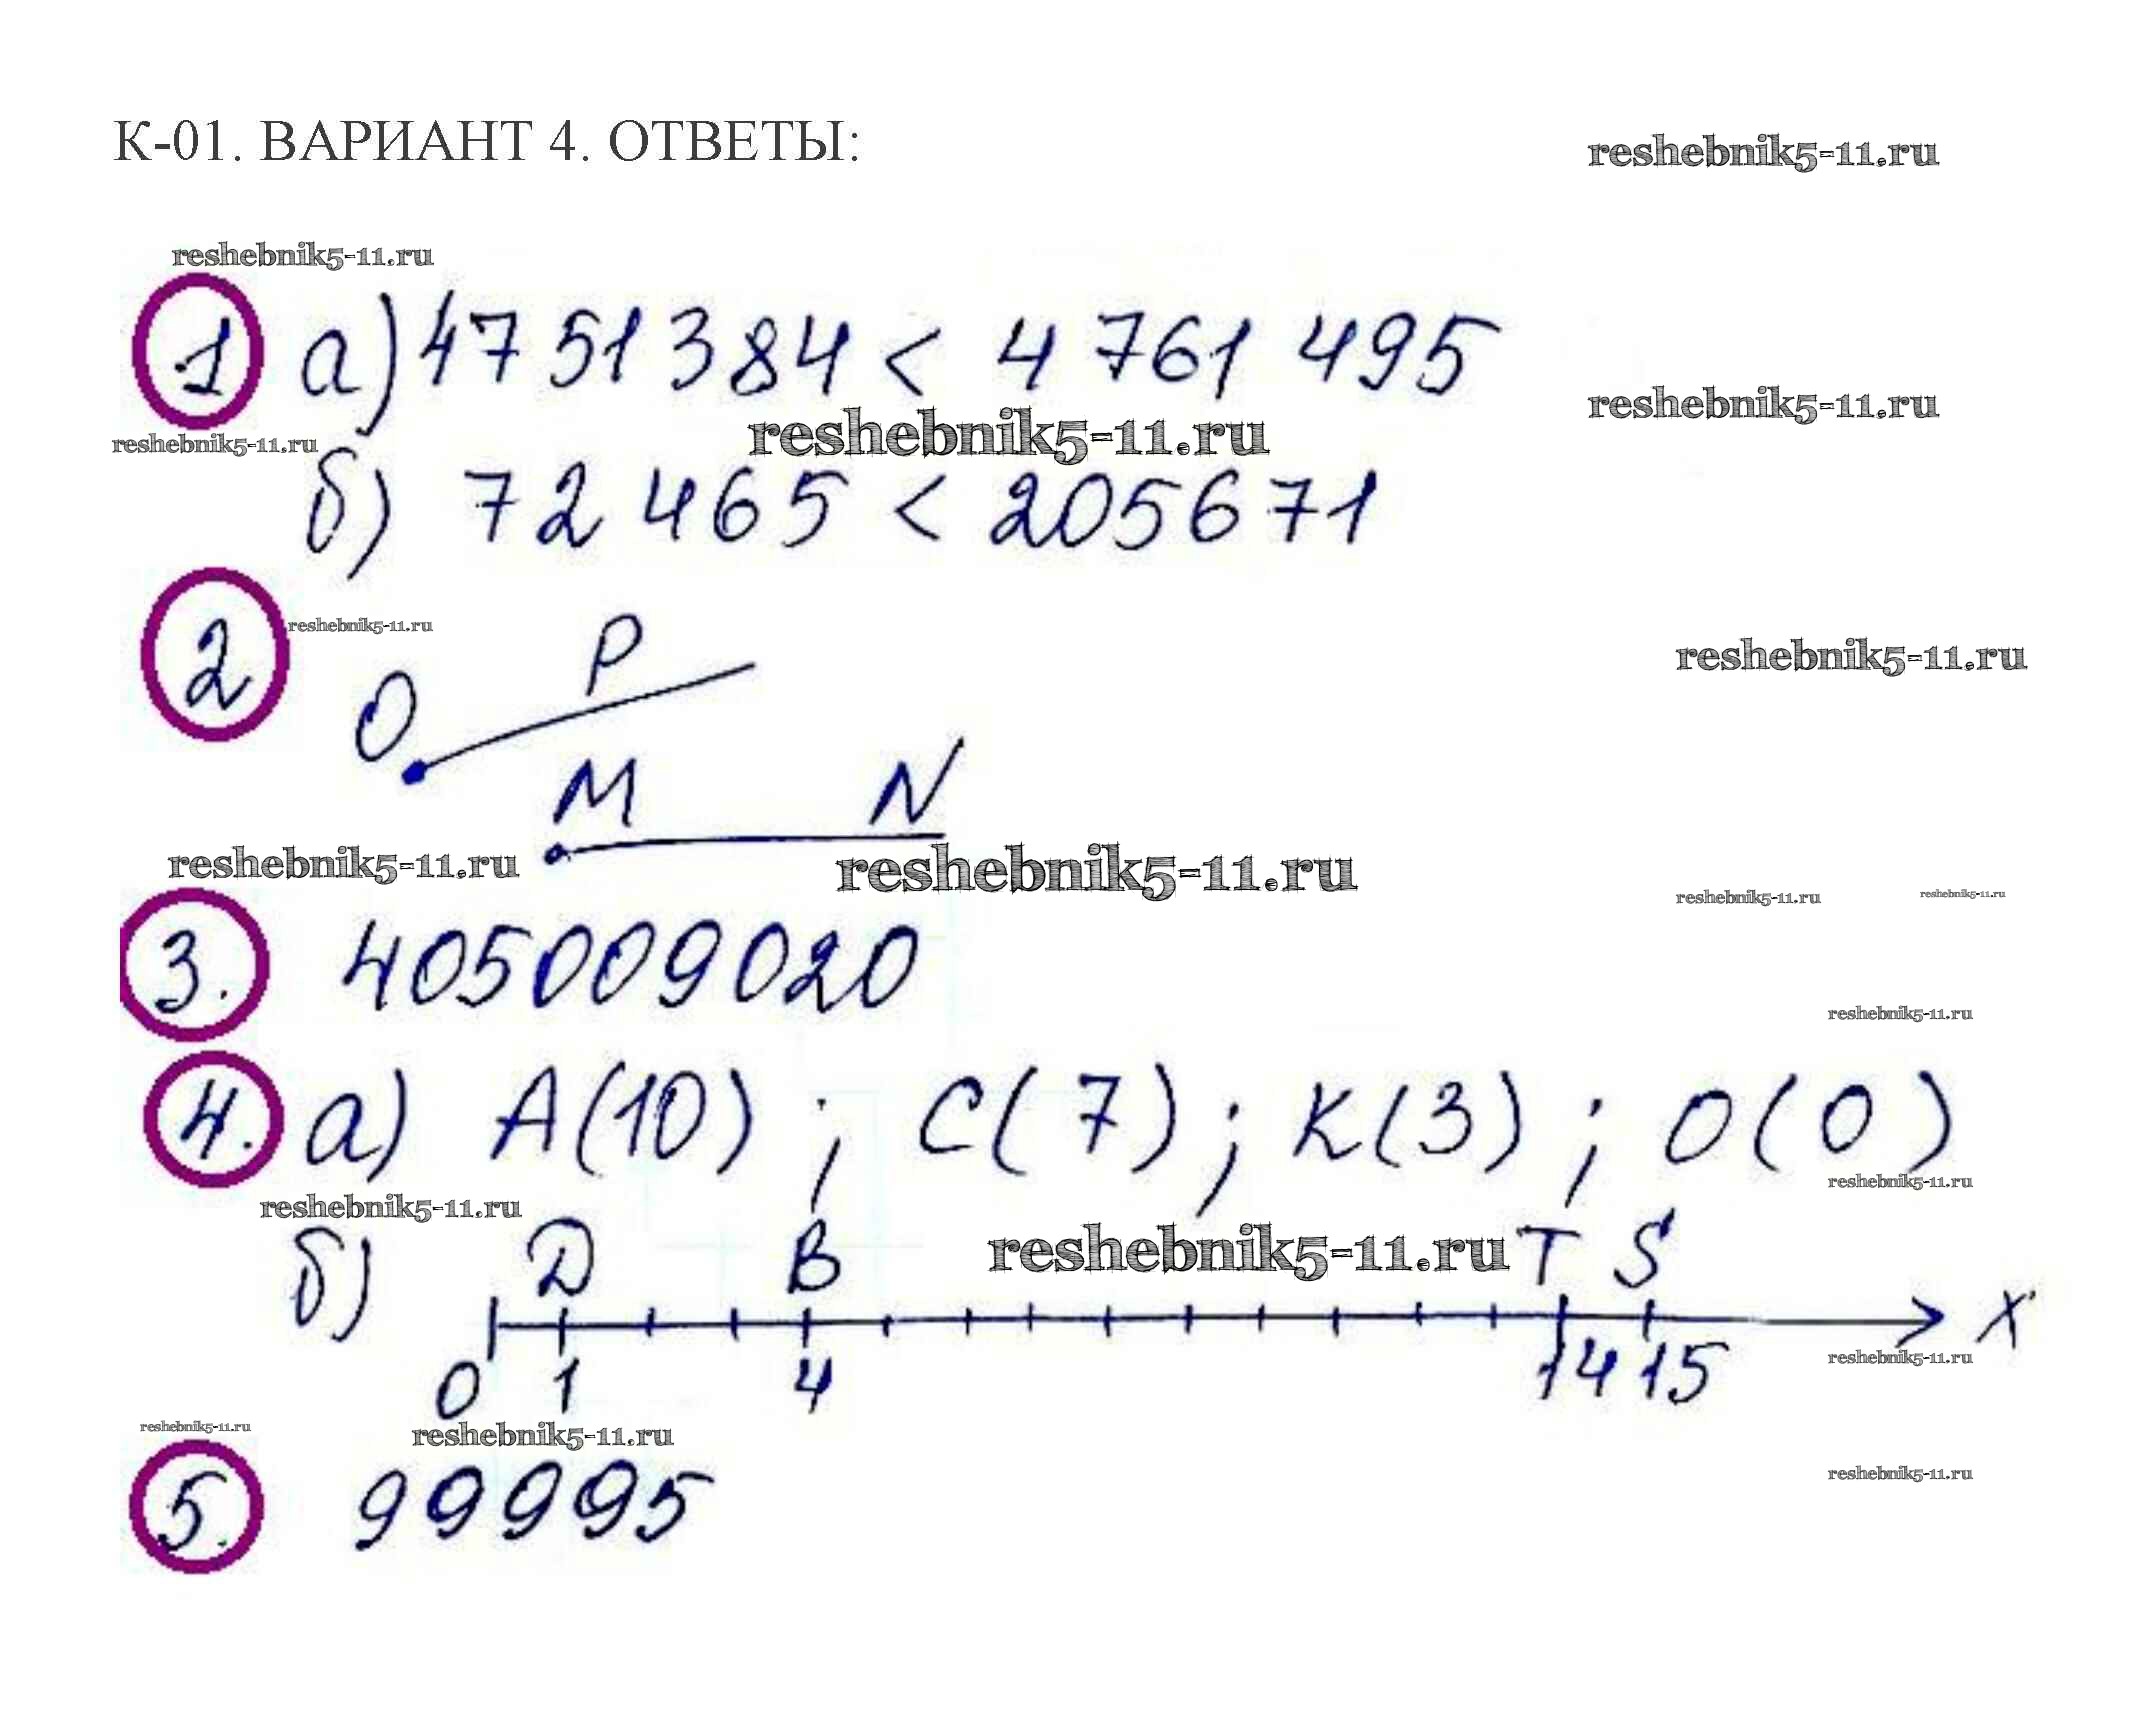 К-01. ВАРИАНТ 4. ОТВЕТЫ:
reshebnik5-11.ru
reshebnik5-11.ru
1 а) 4751384 < 4 761 495
reshebnik5-11.ru
reshebnik5-11.ru
reshebnik5-11.ru
б) 72 465 < 205671
2
reshebnik5-11.ru
P
reshebnik5-11.ru
O
M N
reshebnik5-11.ru
reshebnik5-11.ru
reshebnik5-11.ru
reshebnik5-11.ru
3. 405009020
reshebnik5-11.ru
4. а) A(10) ; C(7) ; K(3) ; O(0)
reshebnik5-11.ru
reshebnik5-11.ru
б) D B reshebnik5-11.ru T S
X
0 1 4 14 15
reshebnik5-11.ru
reshebnik5-11.ru
reshebnik5-11.ru
5. 99995
reshebnik5-11.ru